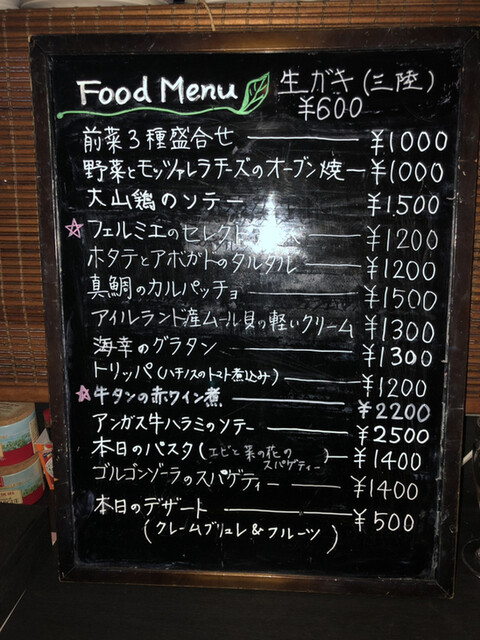 Food Menu
生ガキ(三陸)
¥600
前菜3種盛合せ ¥1000
野菜とモッツァレラチーズのオーブン焼 ¥1000
大山鶏のソテー ¥1.500
☆フェルミエのセレクト ¥1200
ホタテとアボガトのタルタル ¥1200
真鯛のカルパッチョ ¥1500
アイルランド産ムール貝の軽いクリーム ¥1300
海幸のグラタン ¥1300
トリッパ(ハチノスのトマト煮込み) ¥1200
☆牛タンの赤ワイン煮 ¥2200
アンガス牛ハラミのソテー ¥2500
本日のパスタ(エビと菜の花のスパゲティー) ¥1400
ゴルゴンゾーラのスパゲティー ¥1400
本日のデザート ¥500
(クレームブリュレ&フルーツ)